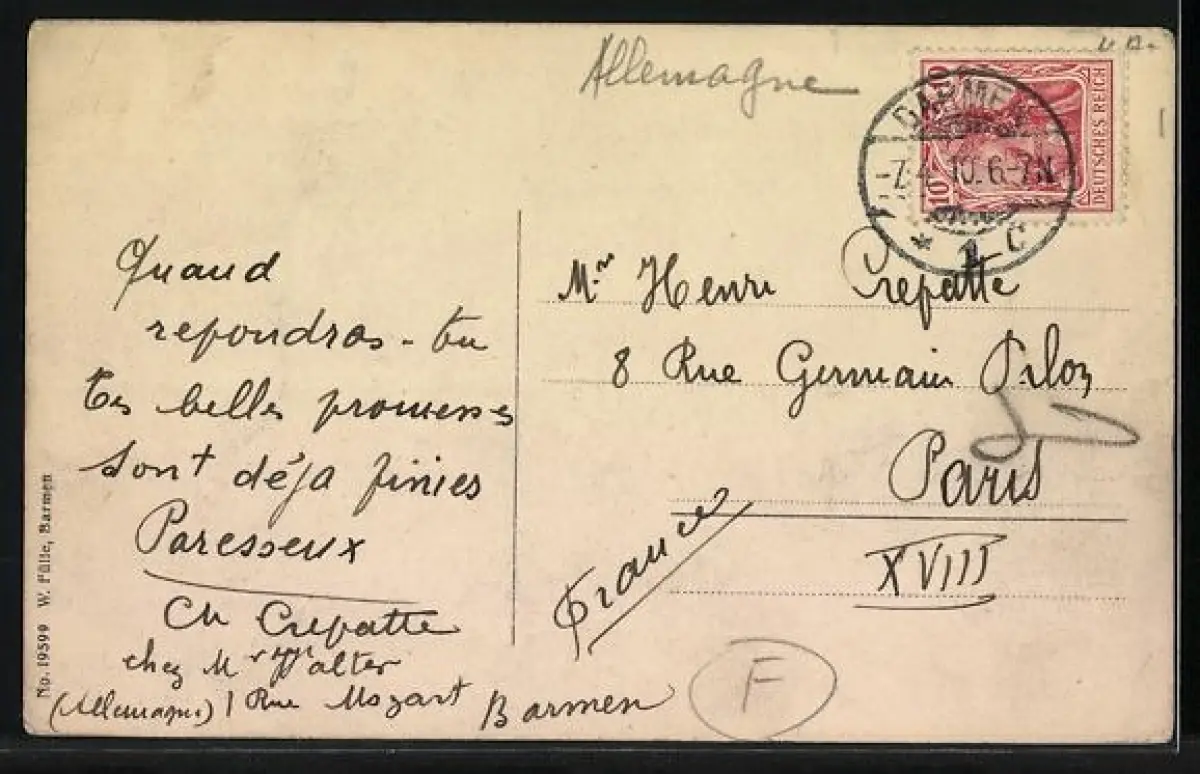 Allemagne
DEUTSCHES REICH
10
10
BARMEN
-7.4.10.6-7N
* 1 C
Quand
repondras-tu
tes belles promesses
sont déja finies
Paresseux
Ch Crepatte
chez Mr Walter
(Allemagne) 1 Rue Mozart Barmen
Mr Henri Crepatte
8 Rue Germain Pilon
Paris
XVIII
France
F
No. 19599 W. Fülle, Barmen